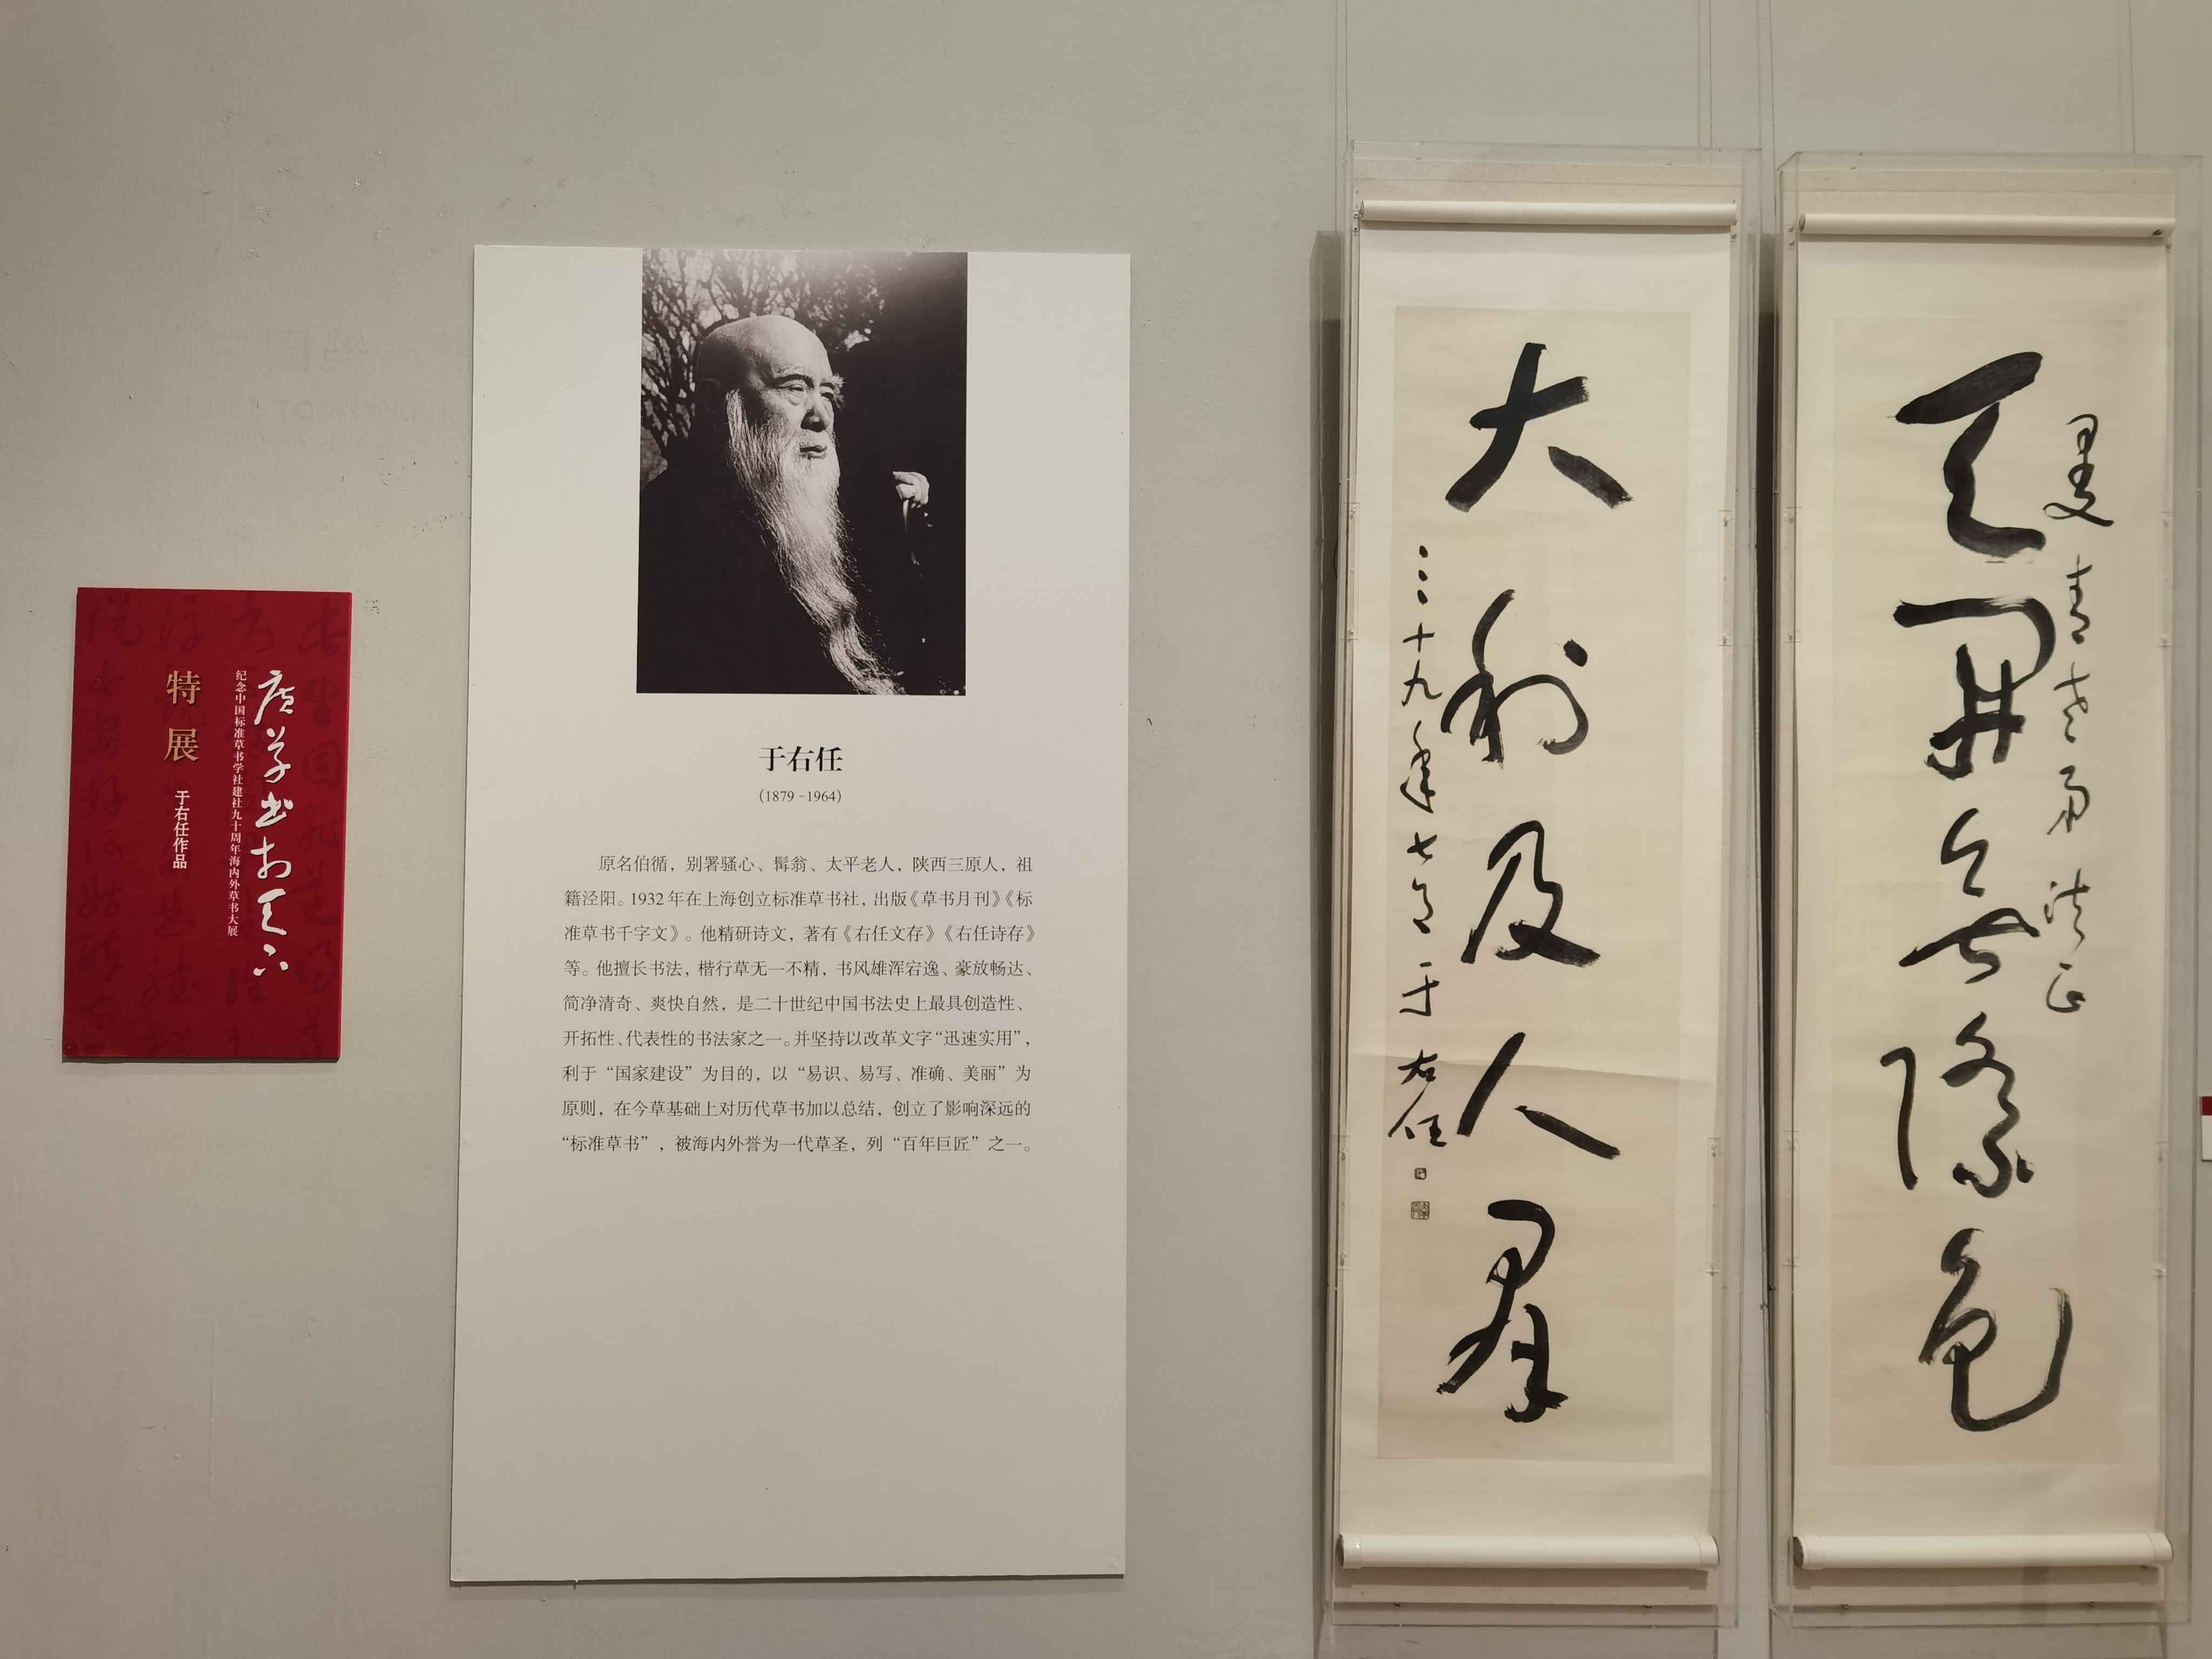 廣草書於天下
纪念中国标准草书学社建社九十周年海内外草书大展
特展
于右任作品
于右任
（1879 -1964）
原名伯循，别署骚心、髯翁、太平老人，陕西三原人，祖
籍泾阳。1932年在上海创立标准草书社，出版《草书月刊》《标
准草书千字文》。他精研诗文，著有《右任文存》《右任诗存》
等。他擅长书法，楷行草无一不精，书风雄浑宕逸、豪放畅达、
简净清奇、爽快自然，是二十世纪中国书法史上最具创造性、
开拓性、代表性的书法家之一。并坚持以改革文字“迅速实用”，
利于“国家建设”为目的，以“易识、易写、准确、美丽”为
原则，在今草基础上对历代草书加以总结，创立了影响深远的
“标准草书”，被海内外誉为一代草圣，列“百年巨匠”之一。
曼青老弟法正
天開無際色
大利及人羣
三十九年七月于右任